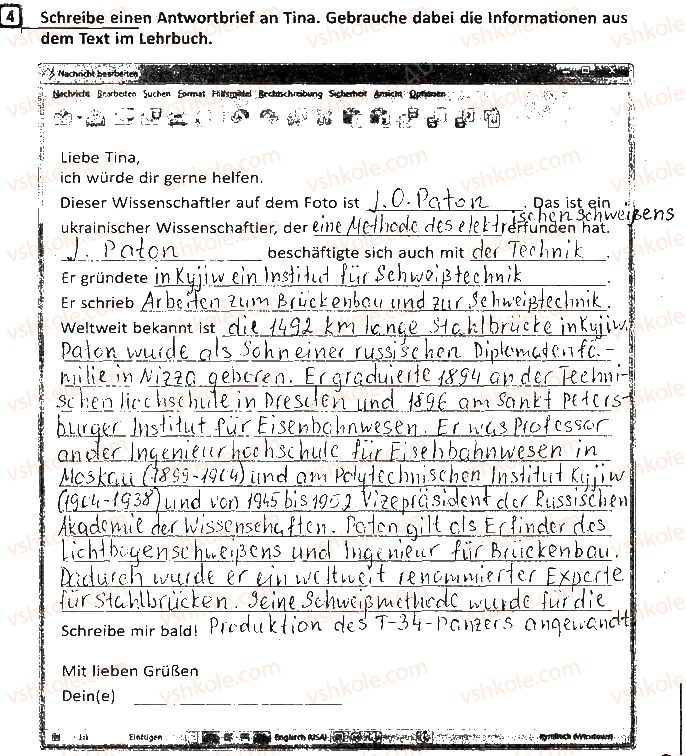 4 Schreibe einen Antwortbrief an Tina. Gebrauche dabei die Informationen aus
dem Text im Lehrbuch.
Nachricht bearbeiten
Nachricht Bearbeiten Suchen Format Hilfsmittel Rechtschreibung Sicherheit Ansicht Optionen
Liebe Tina,
ich würde dir gerne helfen.
Dieser Wissenschaftler auf dem Foto ist J.O.Paton. Das ist ein
ukrainischer Wissenschaftler, der eine Methode des elektrischen Schweißens erfunden hat.
J. Paton beschäftigte sich auch mit der Technik.
Er gründete in Kyjiw ein Institut für Schweißtechnik.
Er schrieb Arbeiten zum Brückenbau und zur Schweißtechnik.
Weltweit bekannt ist die 1492 km lange Stahlbrücke in Kyjiw.
Paton wurde als Sohn einer russischen Diplomatenfa-
milie in Nizza geboren. Er graduierte 1894 an der Techni-
schen Hochschule in Dresden und 1896 am Sankt Peters-
burger Institut für Eisenbahnwesen. Er was Professor
an der Ingenieurhochschule für Eisehbahnwesen in
Moskau (1899-1904) und am Polytechnischen Institut Kyjiw
(1904-1938) und von 1945 bis 1952 Vizepräsident der Russischen
Akademie der Wissenschaften. Paton gilt als Erfinder des
Lichtbogenschweißens und Ingenieur für Brückenbau.
Dadurch wurde er ein weltweit renommierter Experte
für Stahlbrücken. Seine Schweißmethode wurde für die
Schreibe mir bald! Produktion des T-34-Panzers angewandt
Mit lieben Grüßen
Dein(e)
Einfügen Englisch (USA)
vshkole.com